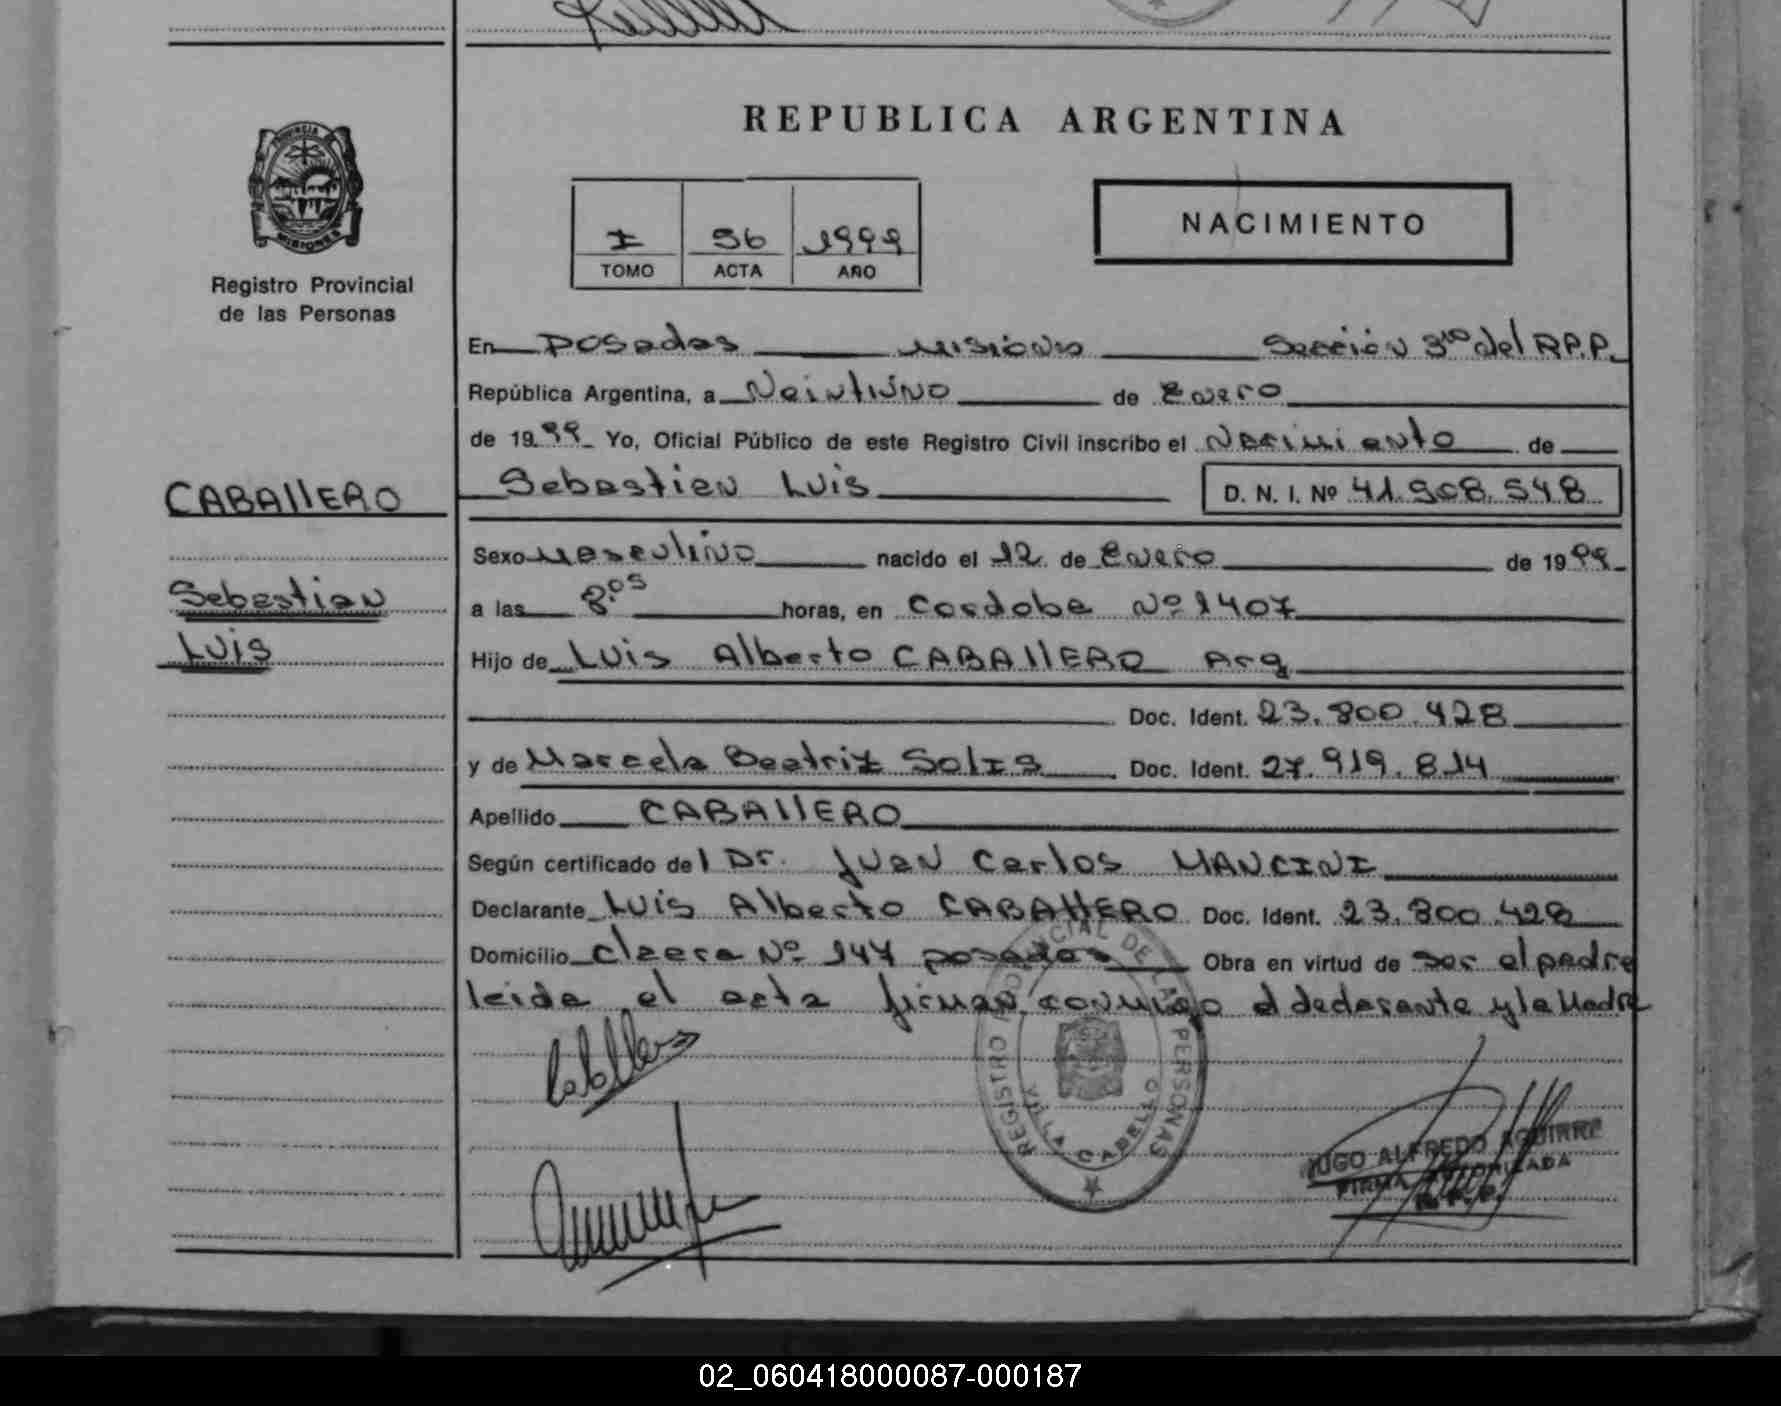 REPUBLICA ARGENTINA
PROVINCIA DE MISIONES
Registro Provincial
de las Personas
I 56 1999
TOMO ACTA AÑO
NACIMIENTO
En Posadas Misiones Sección 3ra del R.P.P.
República Argentina, a Veintiuno de Enero
de 1999 Yo, Oficial Público de este Registro Civil inscribo el Nacimiento de
CABAllERO
Sebastian Luis D. N. I. Nº 41.908.548
Sexo Masculino nacido el 12 de Enero de 1999
Sebastian
a las 8.05 horas, en Cordoba Nº 1407
Luis
Hijo de Luis Alberto CABAllERO Arg
Doc. Ident. 23.800.428
y de Marcela Beatriz SolIS Doc. Ident. 27.919.814
Apellido CABAllERO
Según certificado del Dr. Juan Carlos MANCINI
Declarante Luis Alberto CABAllERO Doc. Ident. 23.800.428
Domicilio Nº 147 posadas Obra en virtud de ser el padre
leida el acta firman conmigo el declarante y la Madre
Caballero
REGISTRO PROVINCIAL DE LAS PERSONAS
VILLA CABELLO
HUGO ALFREDO AGUIRRE
FIRMA AUTORIZADA
R.P.P.
02_060418000087-000187